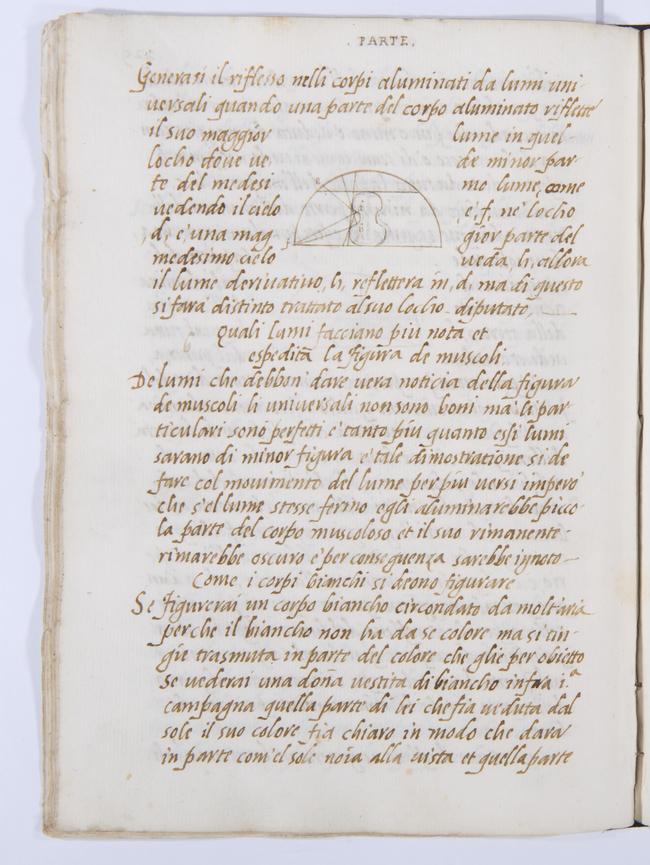 . PARTE .
Generasi il riflesso nelli corpi aluminati da lumi uni-
versali quando una parte del corpo aluminato riflette
il suo maggior lume in quel
locho dove ve de minor par-
te del medesi mo lume, come
vedendo il cielo .e'.f. ne' locho
.d. e' una mag gior parte del
medesimo cielo veda, h, allora
il lume derivativo, h, reflettera in, d, ma di questo
si fara distinto trattato al suo locho diputato,
Quali lumi facciano piu nota et
espedita la figura de muscoli
De lumi che debbon' dare vera noticia della figura
de muscoli li universali non sono boni ma li par
ticulari sono perfetti e' tanto piu quanto essi lumi
sarano di minor figura e' tale dimostratione si de
fare col movimento del lume per piu versi impero'
che s'el lume stesse fermo egli aluminarebbe picco
la parte del corpo muscoloso et il suo rimanente
rimarebbe oscuro e' per conseguenza sarebbe ignoto
Come i corpi bianchi si deono figurare
Se figurerai un corpo biancho circondato da molt'aria
perche il biancho non ha da se colore ma si tin-
gie trasmuta in parte del colore che glie per obietto
Se vederai una doña vestita di biancho infra i.ª
campagna quella parte di lei che fia veduta dal
sole il suo colore fia chiaro in modo che dara
in parte com'el sole noia alla vista et quella parte